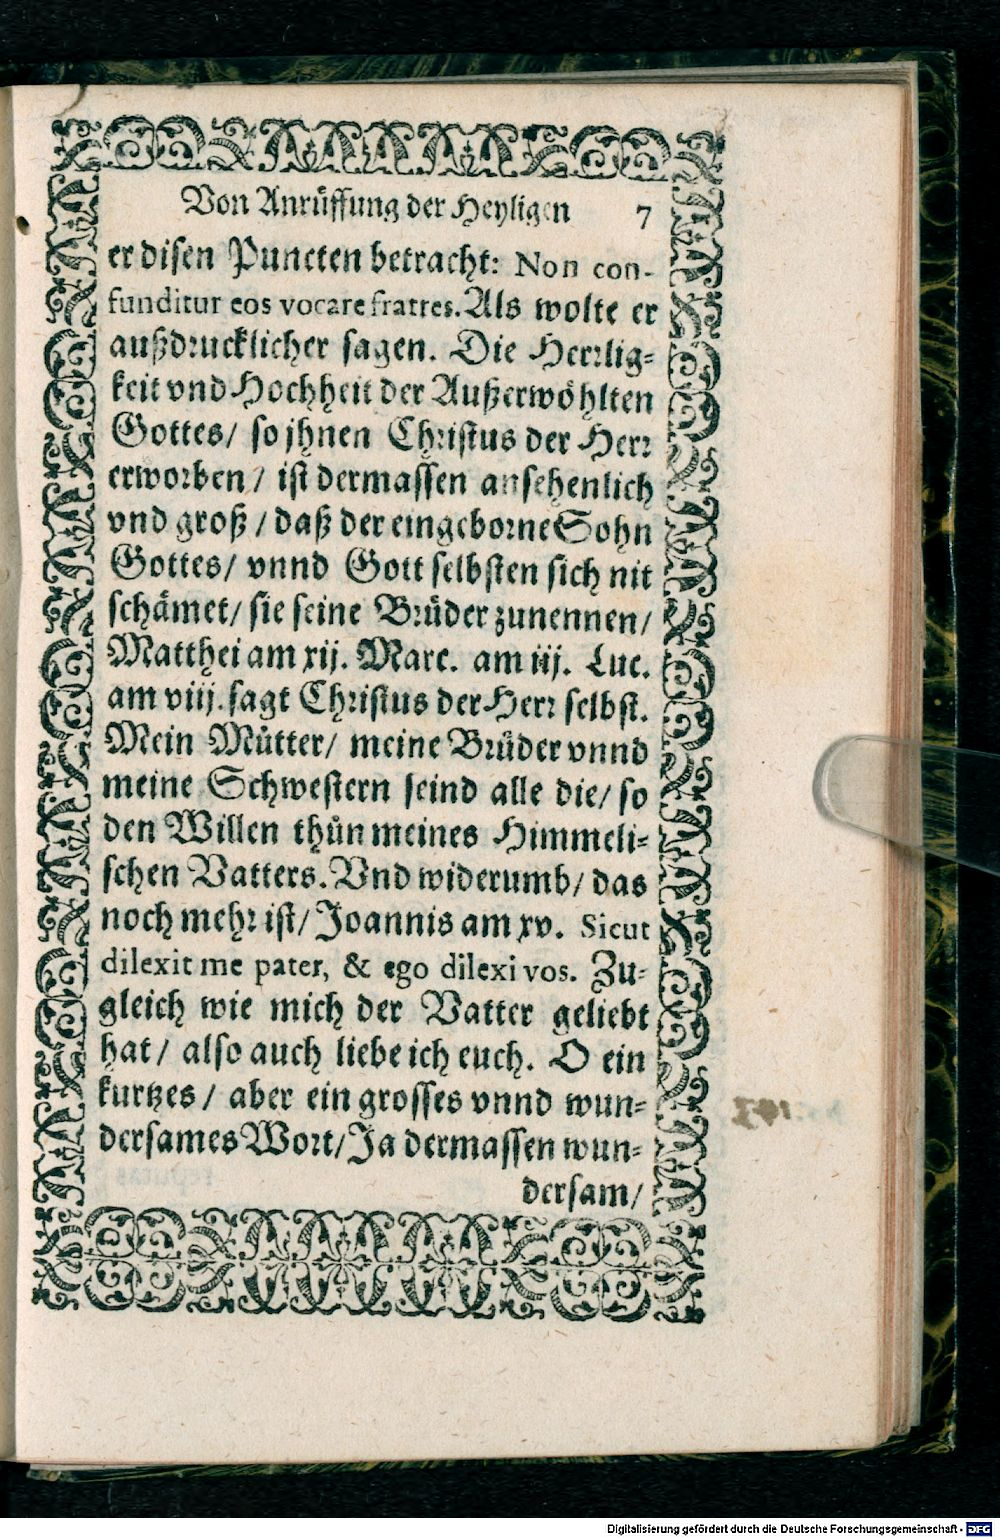 Von Anrüffung der Heyligen 7
er disen Puncten betracht: Non con-
funditur eos vocare fratres. Als wolte er
außdrucklicher sagen. Die Herrlig-
keit vnd Hochheit der Außerwöhlten
Gottes/ so jhnen Christus der Herr
erworben/ ist dermassen ansehenlich
vnd groß/ daß der eingeborne Sohn
Gottes/ vnnd Gott selbsten sich nit
schämet/ sie seine Brüder zunennen/
Matthei am xij. Marc. am iij. Luc.
am viij. sagt Christus der Herr selbst.
Mein Můtter/ meine Brüder vnnd
meine Schwestern seind alle die/ so
den Willen thůn meines Himmeli-
schen Vatters. Vnd widerumb/ das
noch mehr ist/ Joannis am xv. Sicut
dilexit me pater, & ego dilexi vos. Zu-
gleich wie mich der Vatter geliebt
hat/ also auch liebe ich euch. O ein
kurtzes/ aber ein grosses vnnd wun-
dersames Wort/ Ja dermassen wun-
dersam/
Digitalisierung gefördert durch die Deutsche Forschungsgemeinschaft - DFG